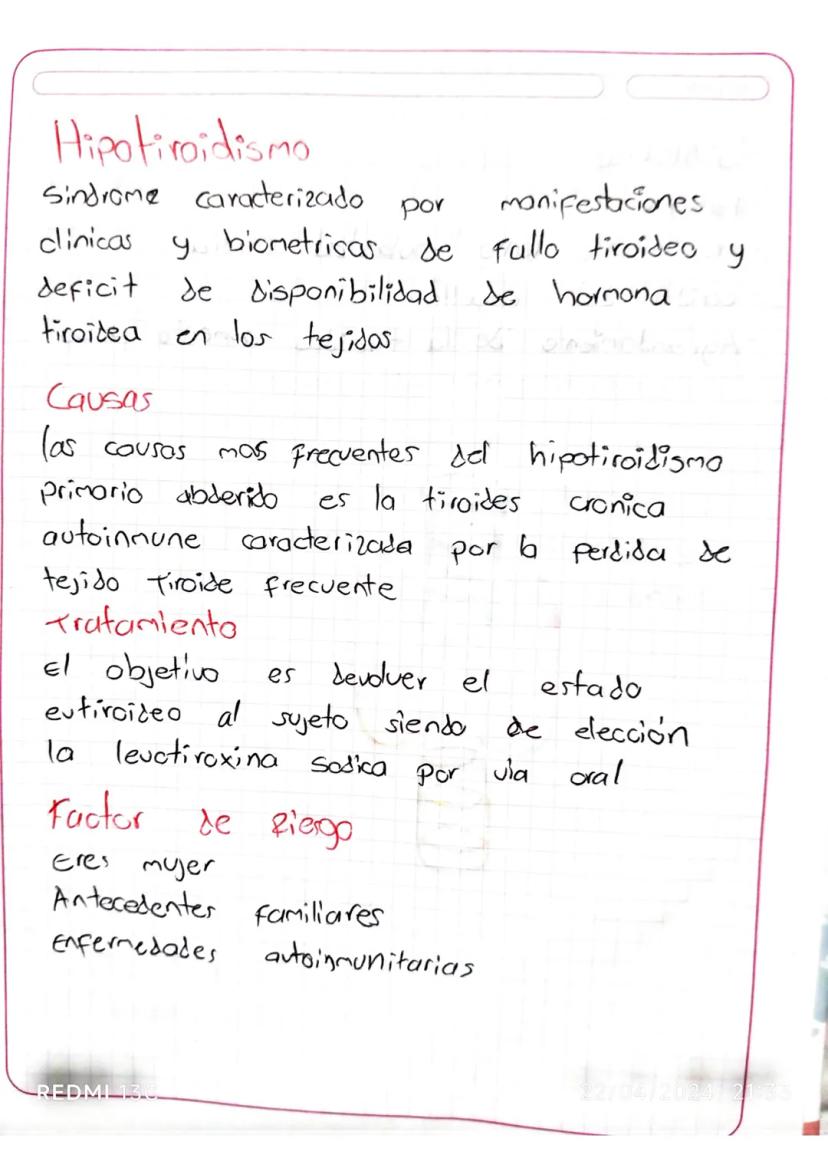 Hipotiroidismo
Sindrome caracterizado por manifestaciones
clinicas y biometricas de fallo tiroideo y
deficit de disponibilidad de hormona
tiroidea en los tejidos
Causas
las causas mas frecuentes del hipotiroidismo
primario abderido es la tiroides cronica
autoinmune caracterizada por la perdida de
tejido tiroide frecuente
Tratamiento
El objetivo es devolver el estado
eutiroideo al sujeto siendo de elección
la levotiroxina sodica por via oral
Factor de Riesgo
Eres mujer
Antecedentes familiares
Enfermedades autoinmunitarias
REDMI 13C
22/04/2024 21:33